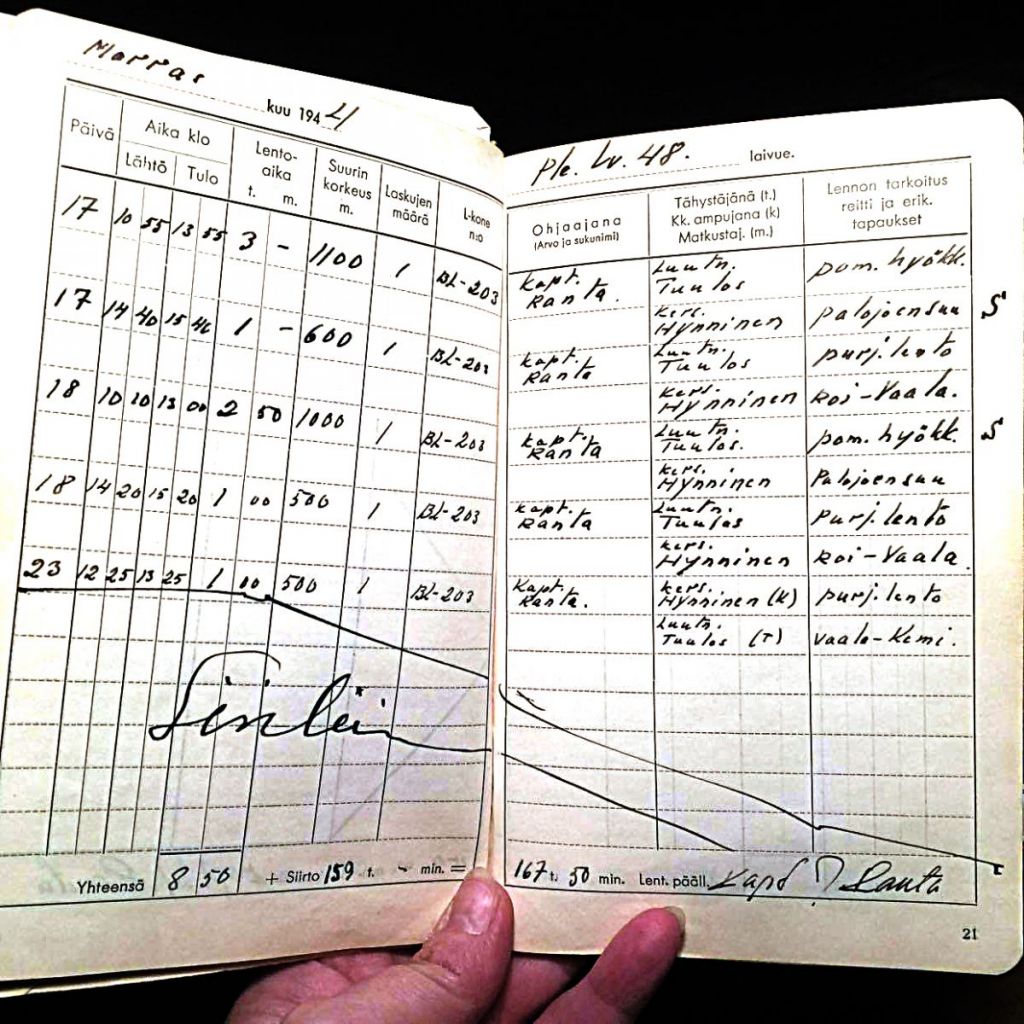 Marras kuu 1944
Päivä Aika klo Lento-aika Suurin korkeus m. Laskujen määrä L-kone n:o
Lähtö Tulo t. m.
17 10 55 13 55 3 - 1100 1 BL-203
17 14 40 15 40 1 - 600 1 BL-203
18 10 10 13 00 2 50 1000 1 BL-203
18 14 20 15 20 1 00 500 1 BL-203
23 12 25 13 25 1 00 500 1 BL-203
Yhteensä 8 50 + Siirto 159 t. - min. =
Ple. Lv. 48. laivue.
Ohjaajana (Arvo ja sukunimi) Tähystäjänä (t.) Kk. ampujana (k) Matkustaj. (m.) Lennon tarkoitus reitti ja erik. tapaukset
Kapt. Ranta. Luutn. Tuulos pom. hyökk.
Kers. Hynninen Palojoensuu S
Kapt. Ranta Luutn. Tuulos purj. lento
Kers. Hynninen Roi-Vaala.
Kapt. Ranta Luutn. Tuulos. pom. hyökk. S
Kers. Hynninen Palojoensuu
Kapt. Ranta Luutn. Tuulos Purj. lento
Kers. Hynninen Roi-Vaala.
Kapt. Ranta. Kers. Hynninen (K) purj. lento
Luutn. Tuulos (T) Vaala-Kemi.
167 t. 50 min. Lent. pääll. Kapt Ranta
21